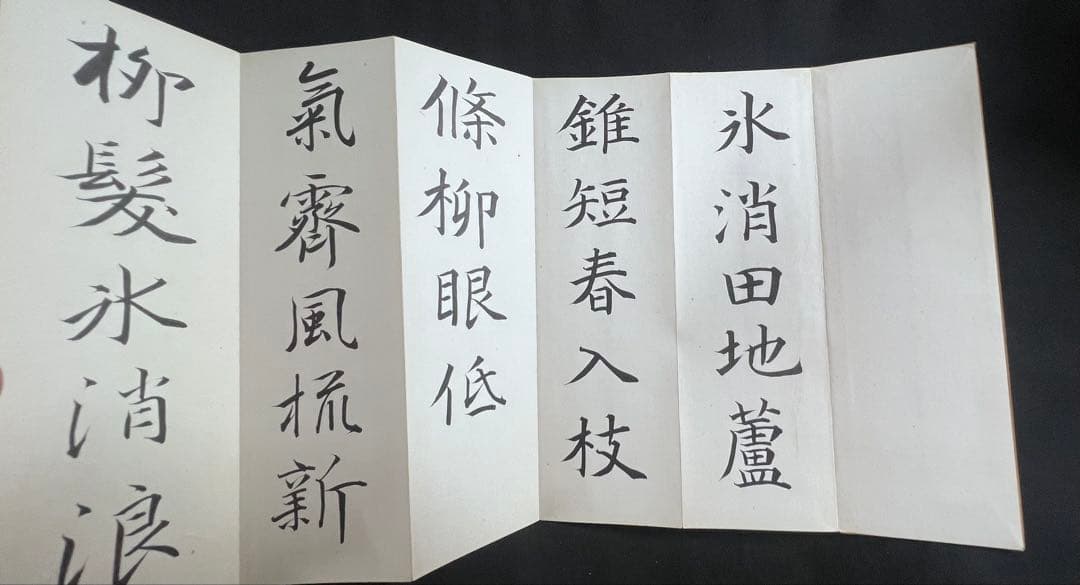 氷消田地蘆
錐短春入枝
條柳眼低
氣霽風梳新
柳髮氷消浪